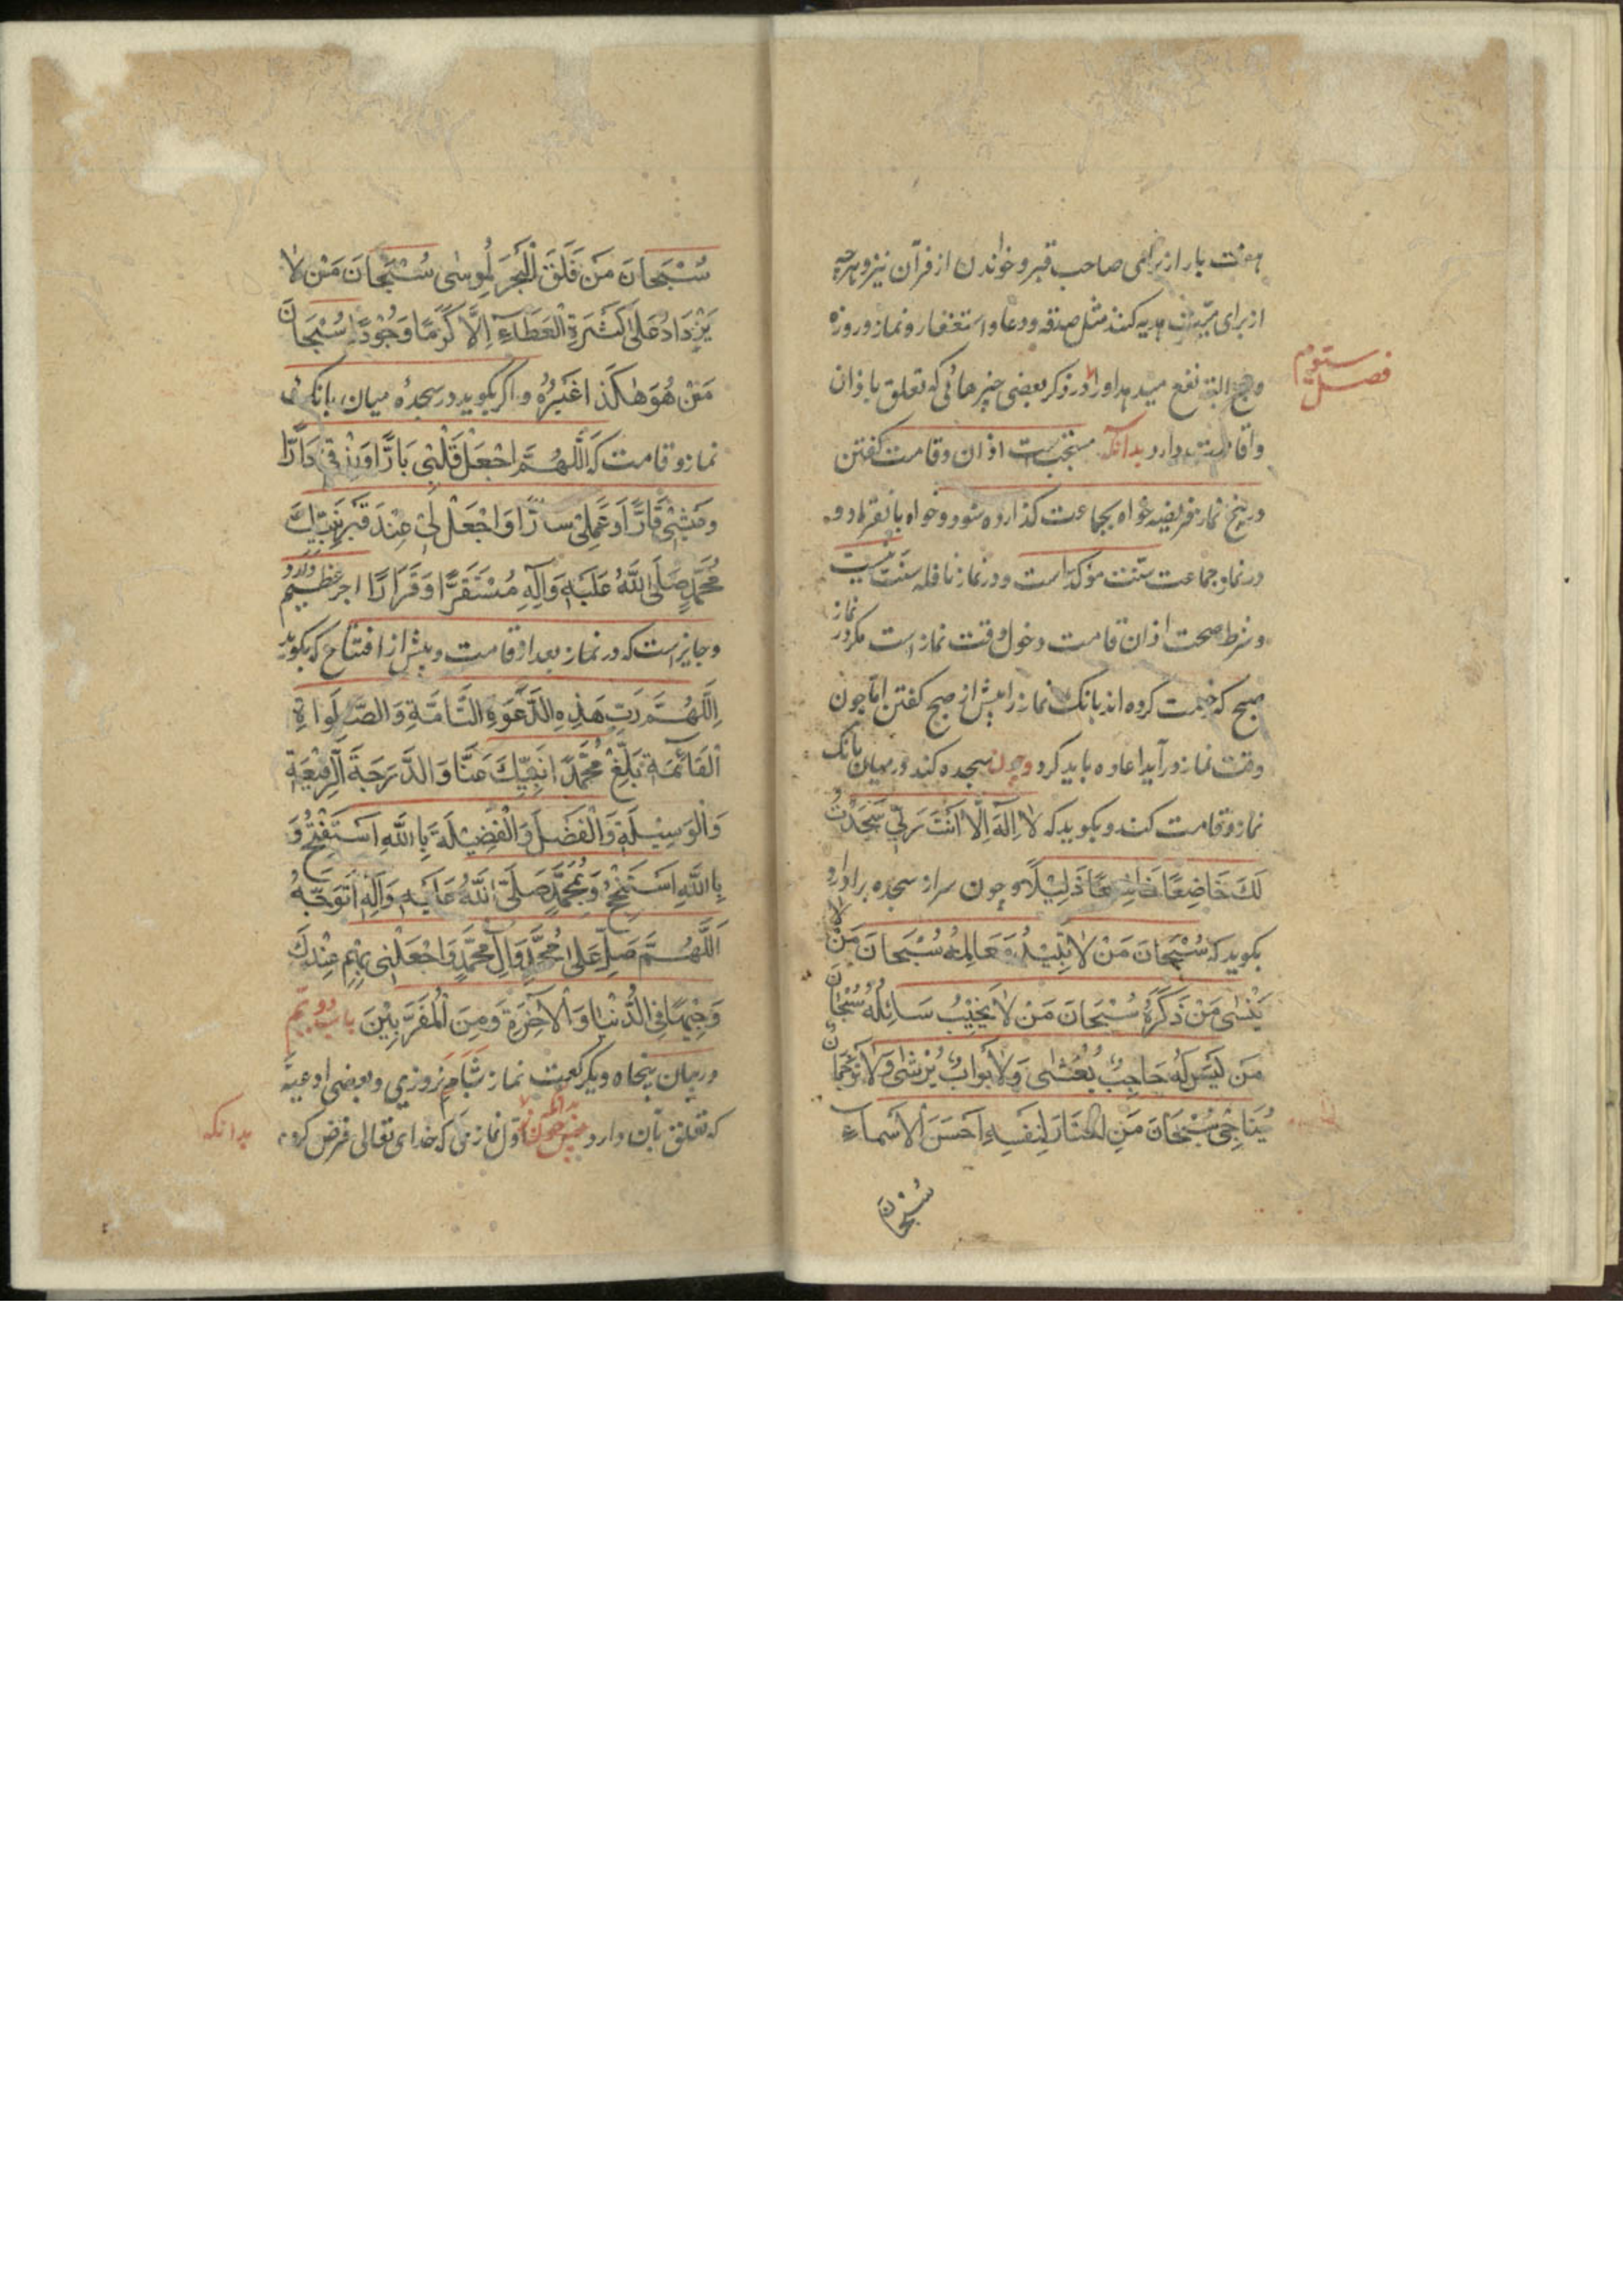 هفت بار از برای صاحب قبر و خواندن از قرآن نیز و هرچه
از برای میت هدیه کنند مثل صدقه و دعا و استغفار و نماز و روزه
و حج البته نفع میدهد او را در ذکر بعضی چیزهائی که تعلق باذان
فصل سوم
و اقامت دارد بدانکه مستحبست اذان و قامت گفتن
در پنج نماز فریضه خواه بجماعت گذارده شود و خواه بانفراد و
در نماز جماعت سنت مؤکد است و در نماز نافله سنت نیست
و شرط صحت اذان قامت دخول وقت نماز است مگر در نماز
صبح که رخصت کرده اند بانگ نماز را پیش از صبح گفتن اما چون
وقت نماز درآید اعاده باید کرد و چون سجده کند در میان بانک
نماز و قامت کند و بگوید که لا اِلٰهَ اِلّا اَنْتَ رَبّي سَجَدْتُ
لَكَ خَاضِعًا خَاشِعًا ذَلِيْلًا و چون سر از سجده بردارد
بگوید که سُبْحَانَ مَنْ لا تَبِيْدُ مَعَالِمُهُ سُبْحَانَ مَنْ لا
يَنْسٰى مَنْ ذَكَرَهُ سُبْحَانَ مَنْ لا يَخِيْبُ سَائِلُهُ سُبْحَانَ
مَن لَيْسَ لَهُ حَاجِبٌ يُغْشٰى وَلا بَوّابٌ يُرْشٰى وَلا تَرْجُمَانٌ
يُنَاجٰى سُبْحَانَ مَنِ اخْتَارَ لِنَفْسِهِ اَحْسَنَ الاَسْماءِ
سُبْحَانَ
سُبْحَانَ مَنْ فَلَقَ الْبَحْرَ لِمُوسٰى سُبْحَانَ مَنْ لا
يَزْدَادُ عَلٰى كَثْرَةِ الْعَطَآءِ اِلَّا كَرَمًا وَجُوْدًا سُبْحَانَ
مَنْ هُوَ هٰكَذَا غَيْرُهُ و اگر بگوید در سجدهٔ میان بانک
نماز و قامت که اَللّٰهُمَّ اجْعَلْ قَلْبِيْ بَارًّا وَرِزْقِيْ دَارًّا
وَعَيْشِيْ قَارًّا وَعَمَلِيْ سَارًّا وَاجْعَلْ لِيْ عِنْدَ قَبْرِ نَبِيِّكَ
مُحَمَّدٍ صَلَّى اللّٰهُ عَلَيْهِ وَآلِهِ مُسْتَقَرًّا وَقَرَارًا اجر عظیم دارد و
و جایز است که در نماز بعد از قامت و پیش از افتتاح که بگوید
اَللّٰهُمَّ رَبَّ هٰذِهِ الدَّعْوَةِ التَّامَّةِ وَالصَّلٰوةِ
الْقَائِمَةِ بَلِّغْ مُحَمَّدًا نَبِيَّكَ عَنَّا وَالدَّرَجَةَ الرَّفِيْعَةَ
وَالْوَسِيْلَةَ وَالْفَضْلَ وَالْفَضِيْلَةَ بِاللّٰهِ اَسْتَفْتِحُ وَ
بِاللّٰهِ اَسْتَنْجِحُ وَبِمُحَمَّدٍ صَلَّى اللّٰهُ عَلَيْهِ وَآلِهِ اَتَوَجَّهُ
اَللّٰهُمَّ صَلِّ عَلٰى مُحَمَّدٍ وَآلِ مُحَمَّدٍ وَاجْعَلْنِي بِهِمْ عِنْدَكَ
وَجِيْهًا فِي الدُّنْيَا وَالْآخِرَةِ وَمِنَ الْمُقَرَّبِيْنَ باب دویم
در بیان پنجاه و یک رکعت نماز شبانروزی و بعضی ادعیه
که تعلق بآن دارد اول نمازی که خدای تعالی فرض کرده
بدانکه